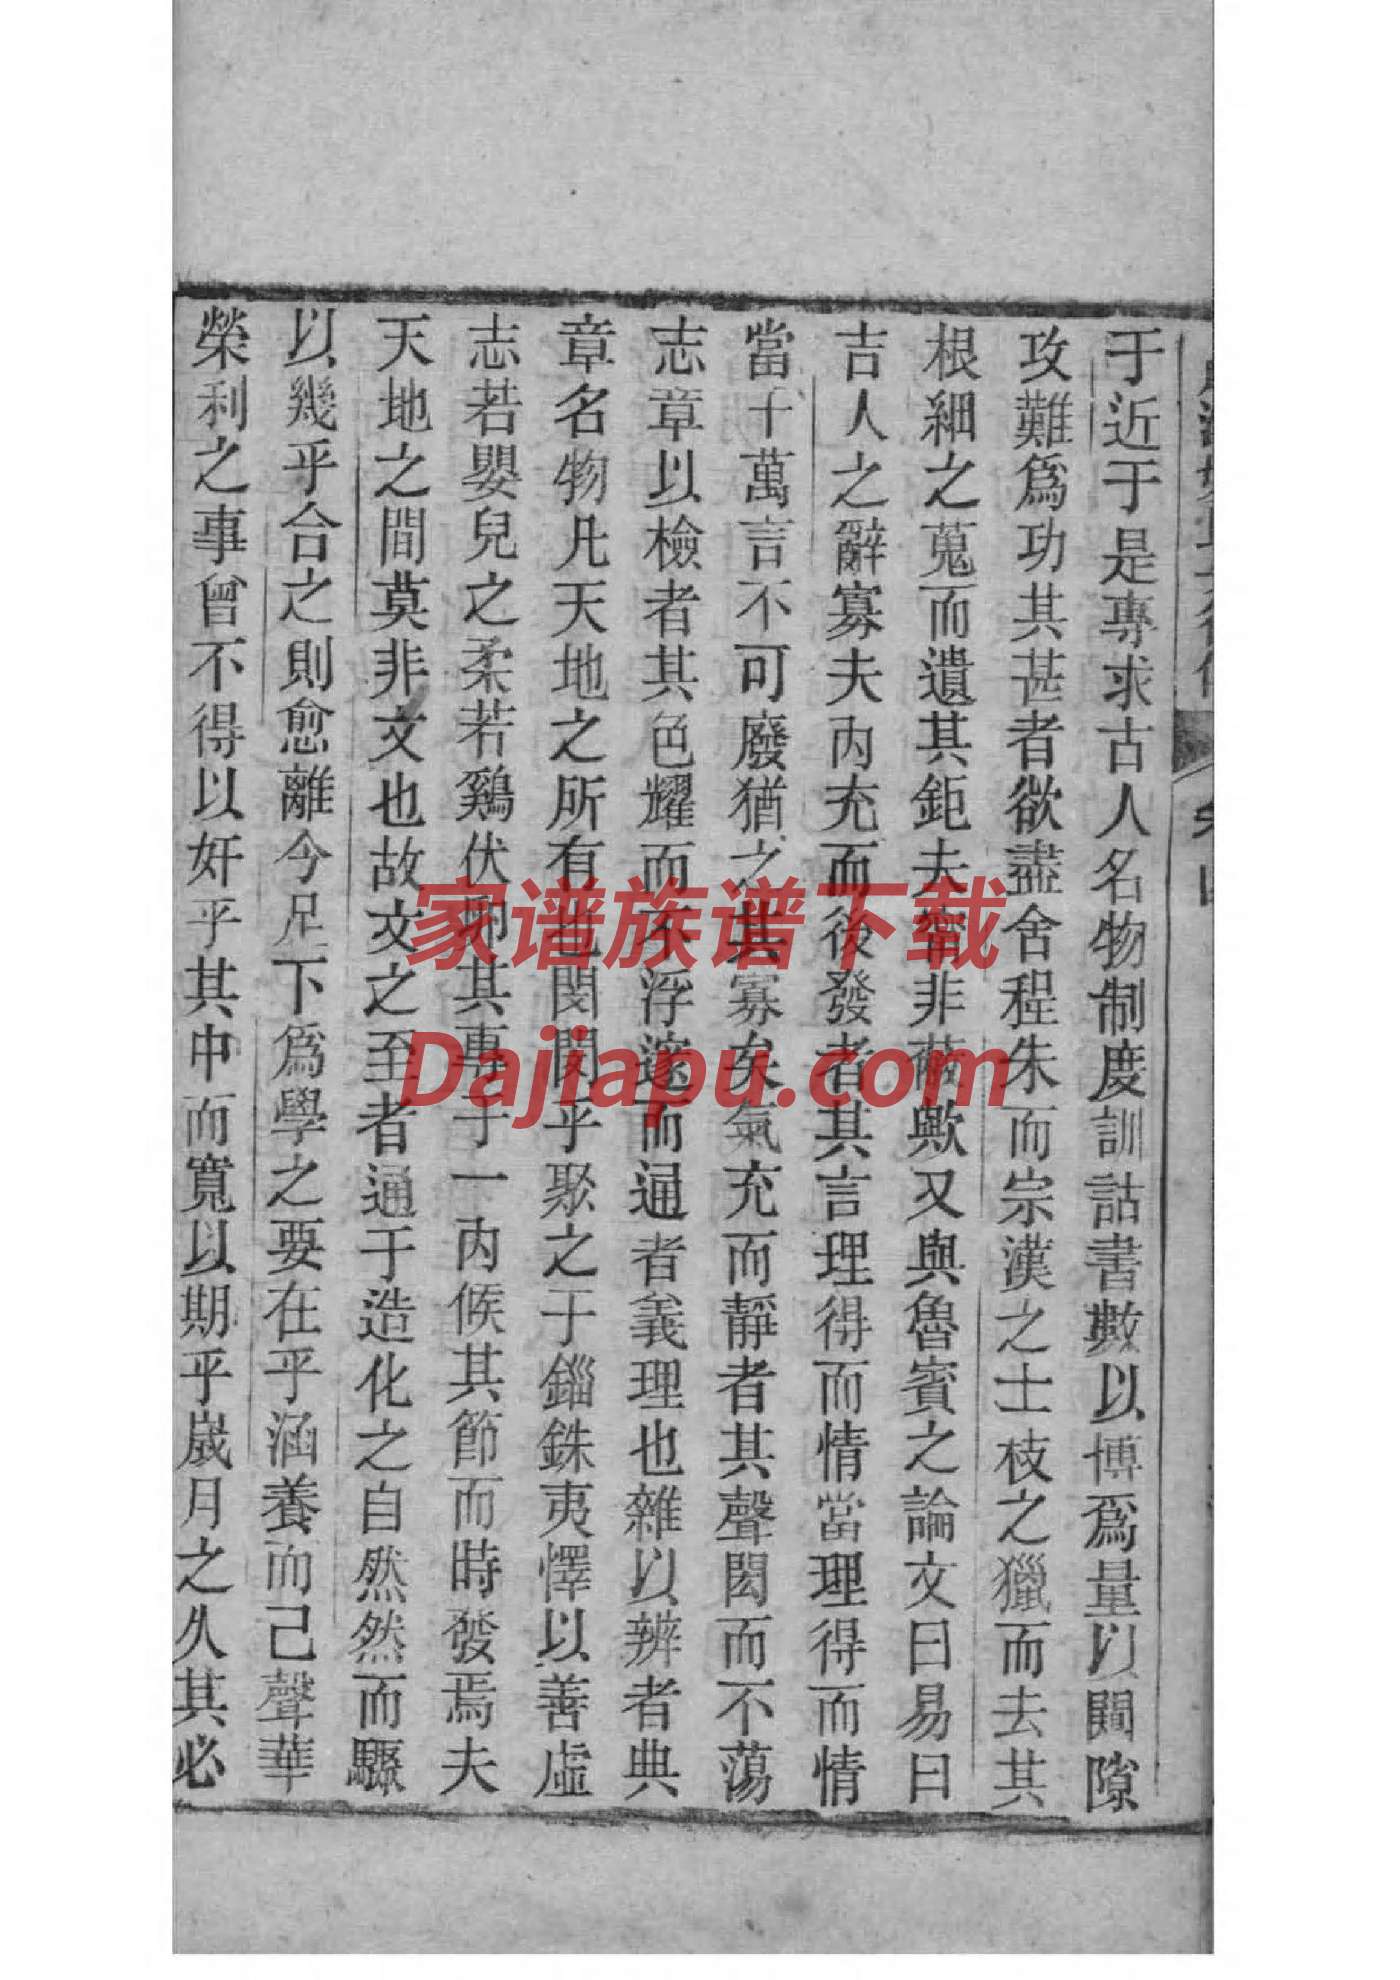 于近于是專求古人名物制度訓詁書數以博爲量以闚隙
攻難爲功其甚者欲盡舍程朱而宗漢之士枝之獵而去其
根細之蒐而遺其鉅夫寧非蔽歟又與魯賓之論文曰易曰
吉人之辭寡夫內充而後發者其言理得而情當理得而情
當十萬言不可廢猶之其寡矣氣充而靜者其聲閎而不蕩
志章以檢者其色耀而不浮邃而通者義理也雜以辨者典
章名物凡天地之所有也閔閔乎聚之于錙銖夷懌以善虛
志若嬰兒之柔若鷄伏卵其專于一內候其節而時發焉夫
天地之間莫非文也故文之至者通于造化之自然然而驟
以幾乎合之則愈離今足下爲學之要在乎涵養而已聲華
榮利之事曾不得以奸乎其中而寬以期乎歲月之久其必
家谱族谱下载
Dajiapu.com